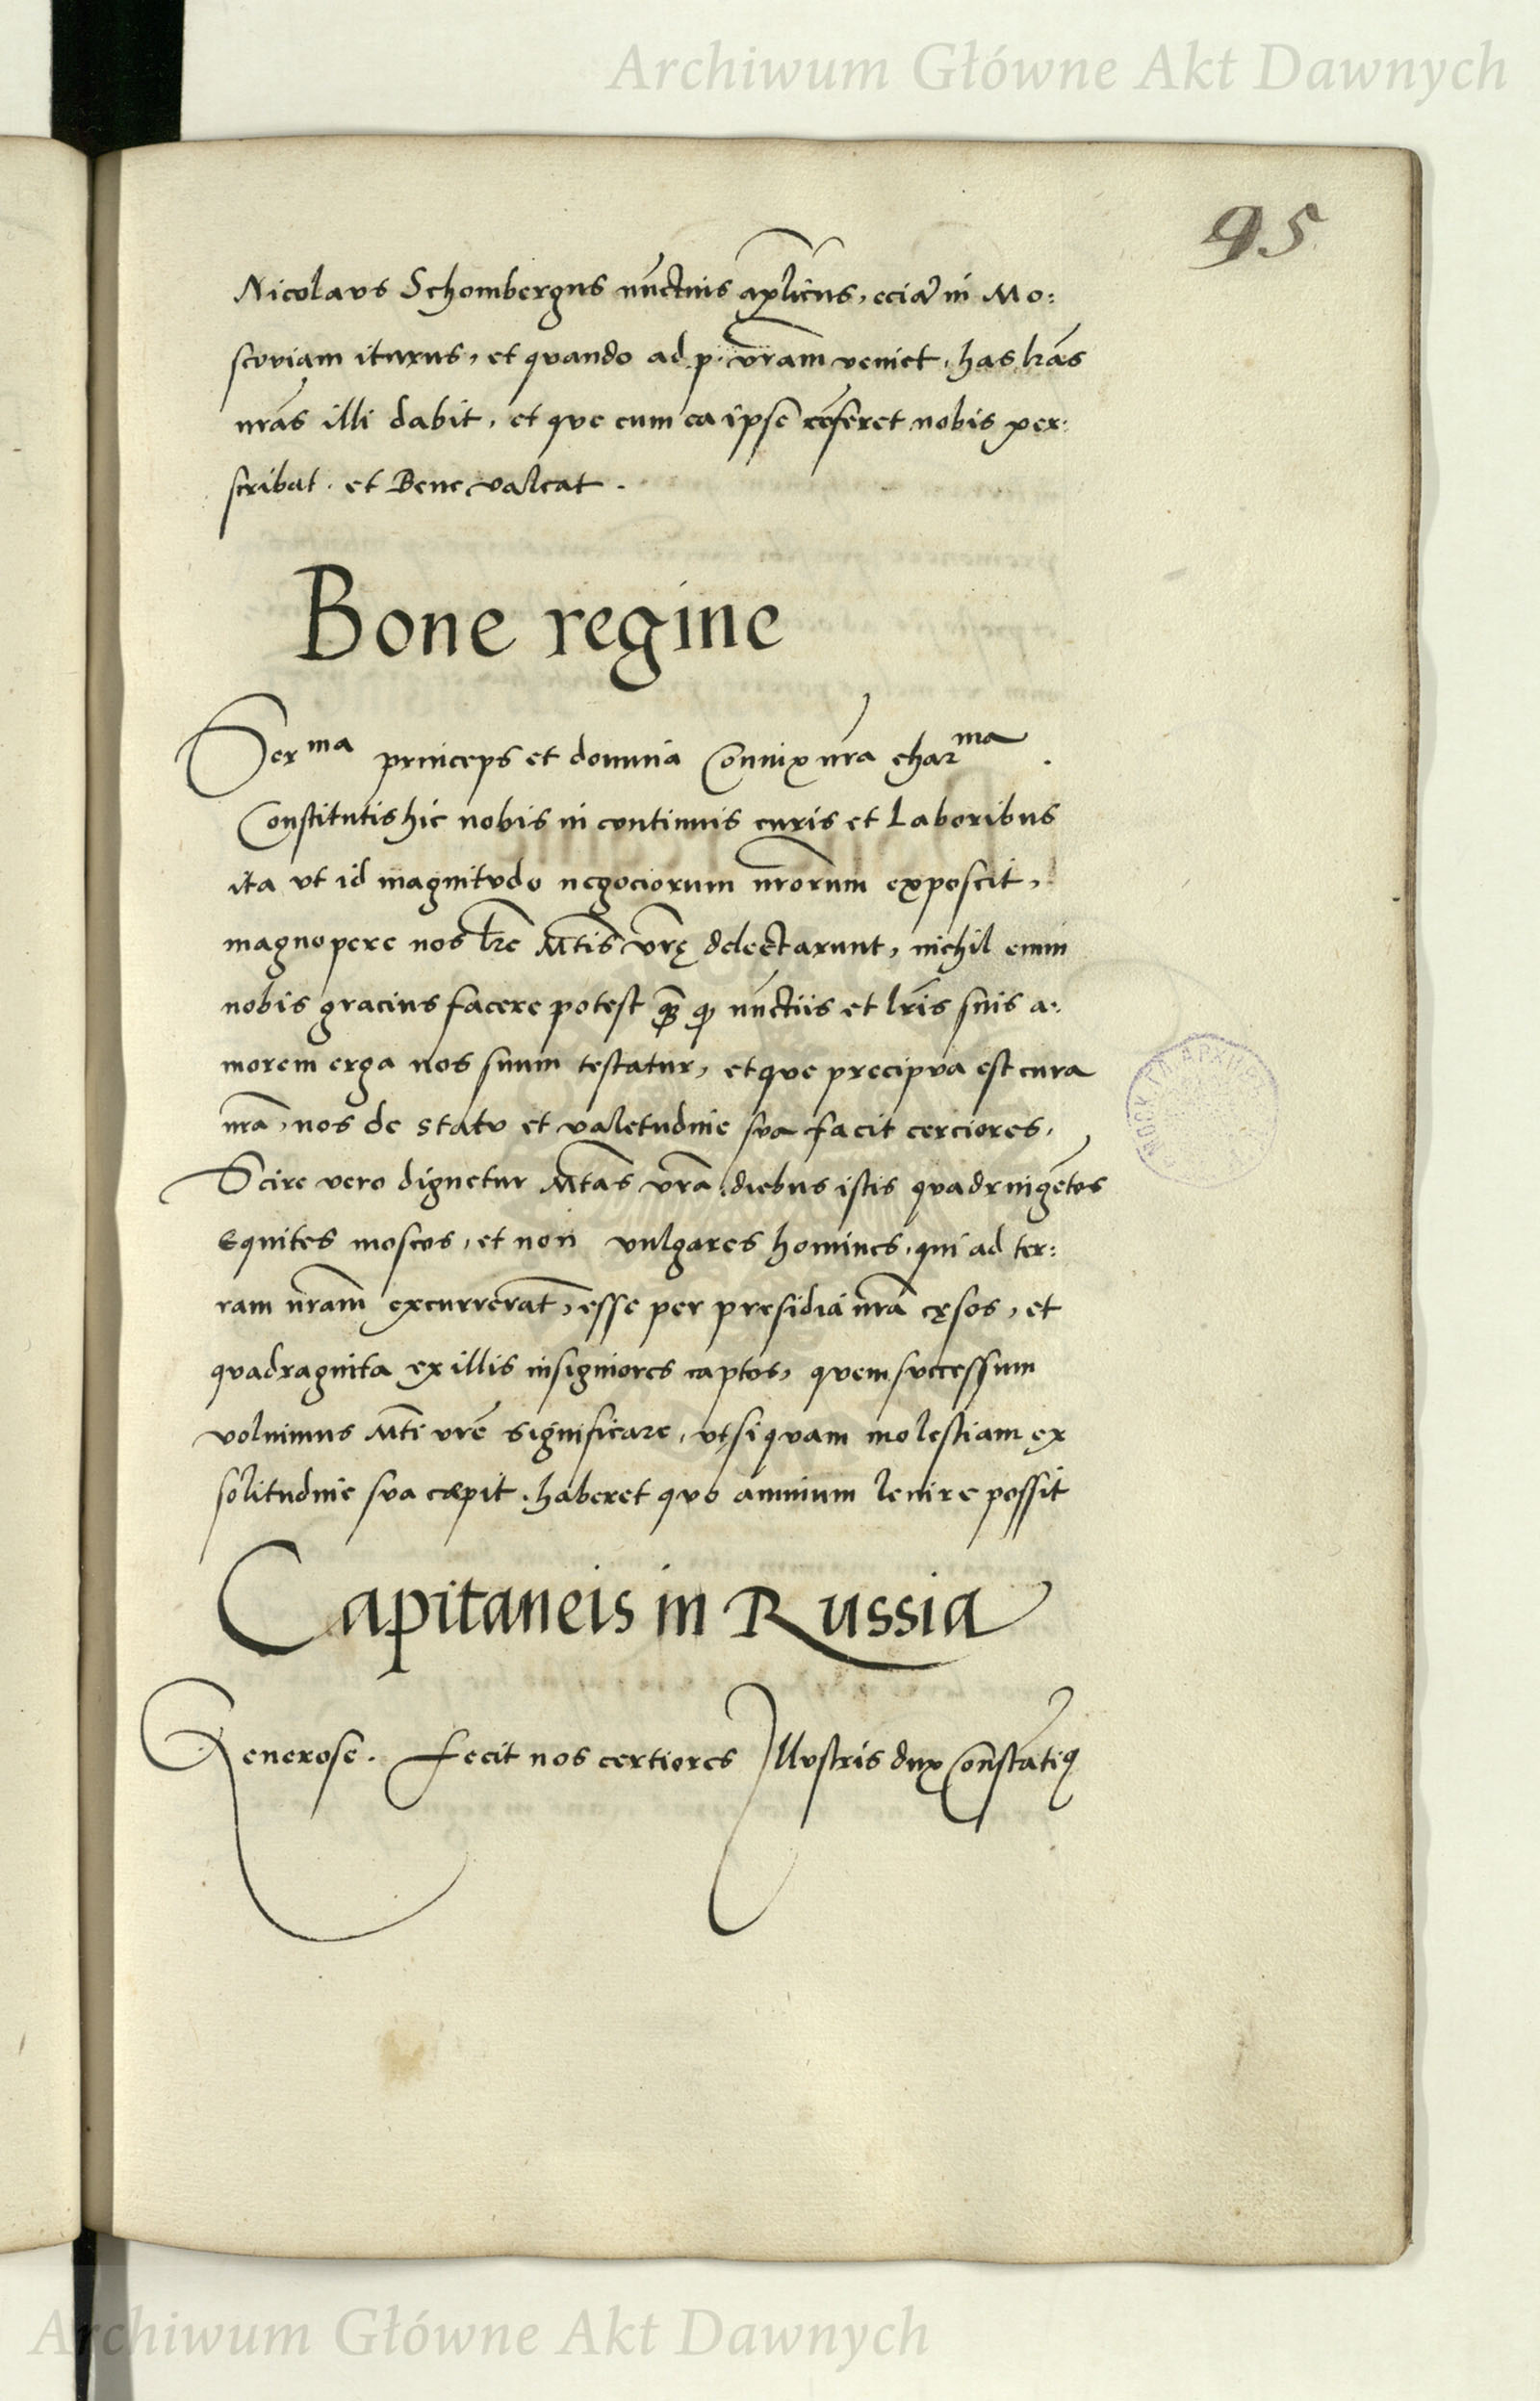 Archiwum Główne Akt Dawnych
95
Nicolaus Schombergus nūctius aplicus, eciā in Mo:
scoviam iturus, et quando ad p. vram veniet, has lrās
nrās illi dabit, et que cum ea ipse cōferet nobis per:
scribat. et Bene valeat.
Bone regine
Serma princeps et domina Coniux nra charma.
Constitutis hic nobis in continuis curis et Laboribus
ita ut id magnitudo negociorum nrorum exposcit,
magnopere nos lre Mtis vrę delectarunt, nichil enim
nobis gracius facere potest quā quod nūctiis et lris suis a:
morem erga nos suum testatur, et que precipua est cura
nra, nos de statu et valetudine sua facit cerciores.
Scire vero dignetur Mtas vra diebus istis quadringētos
Equites moscos, et non vulgares homines, qui ad ter:
ram nram excurrerāt, esse per presidia nra cęsos, et
quadraginta ex illis insigniores captos, quem successum
voluimus Mti vre significare, ut si quam molestiam ex
solitudine sua cœpit, haberet quo animum lenire possit
Capitaneis in Russia
Generose. Fecit nos certiores Illustris dux Constātiꝯ
Archiwum Główne Akt Dawnych